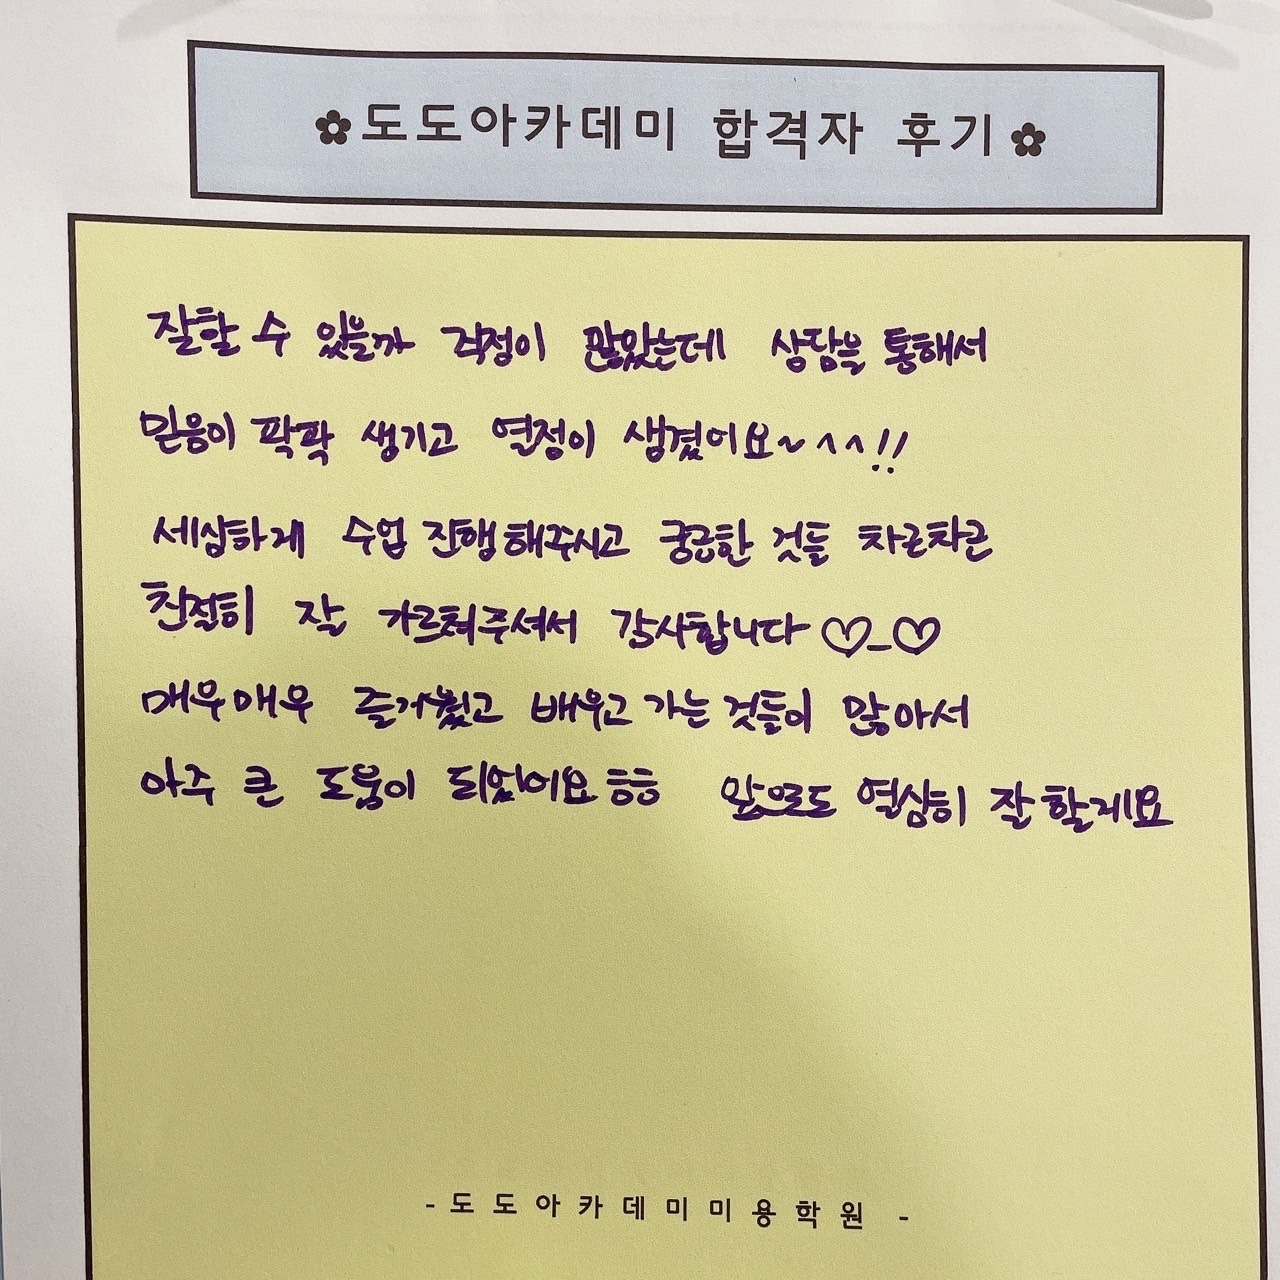 ✿도도아카데미 합격자 후기✿
잘할 수 있을까 걱정이 많았는데 상담을 통해서
믿음이 팍팍 생기고 열정이 생겼어요~^^!!
세심하게 수업 진행해주시고 궁금한 것들 차근차근
친절히 잘 가르쳐주셔서 감사합니다♡_♡
매우매우 즐거웠고 배우고 가는 것들이 많아서
아주 큰 도움이 되었어요 ㅎㅎ 앞으로도 열심히 잘 할게요
- 도도아카데미미용학원 -